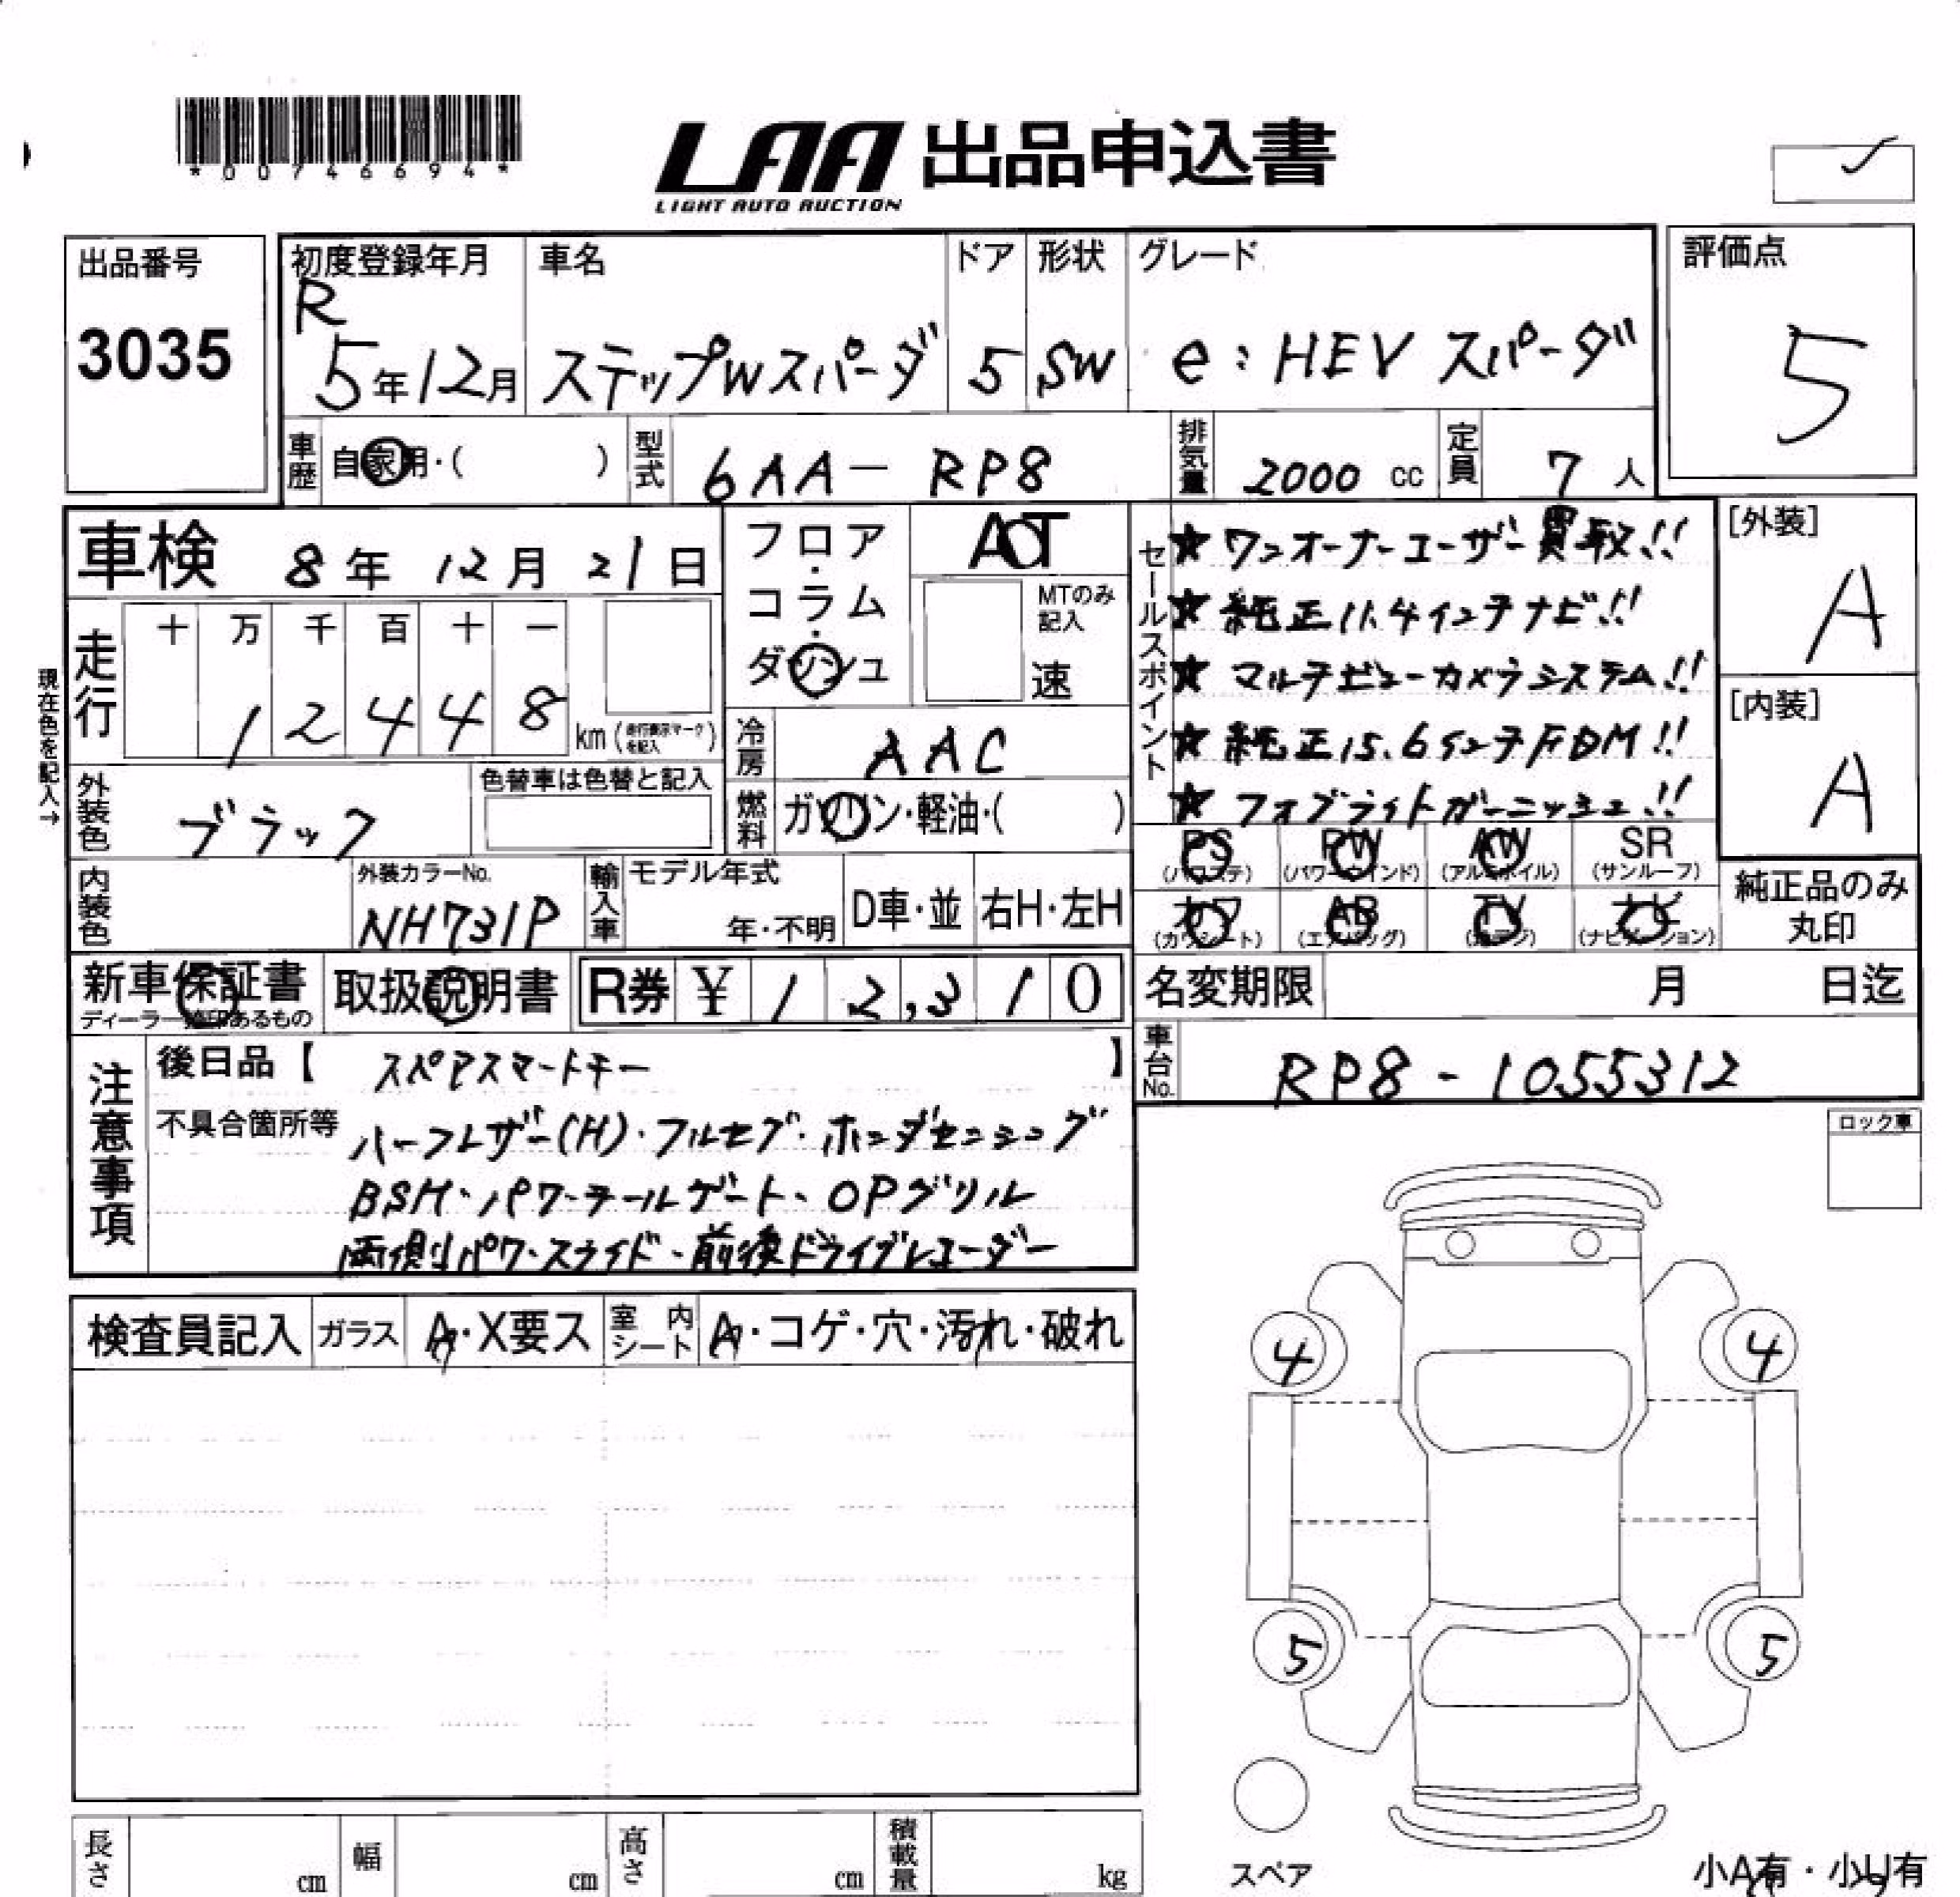 *00746694*
LAA 出品申込書
LIGHT AUTO AUCTION
出品番号
3035
初度登録年月
R
5年12月
車名
ステップWスパーダ
ドア
5
形状
SW
グレード
e:HEV スパーダ
評価点
5
車歴
自家用・( )
型式
6AA-RP8
排気量
2000 cc
定員
7 人
車検 8年 12月 21日
フロア・コラム・ダッシュ
AT
MTのみ記入
速
セールスポイント
★ワンオーナーユーザー買取!!
★純正11.4インチナビ!!
★マルチビューカメラシステム!!
★純正15.6インチFDM!!
★フォグライトガーニッシュ!!
[外装]
A
[内装]
A
現在色を記入→
走行
十 万 千 百 十 一
1 2 4 4 8
km (走行表示マークを記入)
冷房
AAC
外装色
ブラック
色替車は色替と記入
燃料
ガソリン・軽油・( )
PS
(パワステ)
PW
(パワーウインド)
AW
(アルミホイル)
SR
(サンルーフ)
カワ
(カワシート)
AB
(エアバッグ)
TV
(地デジ)
ナビ
(ナビゲーション)
純正品のみ
丸印
内装色
外装カラーNo.
NH731P
輸入車
モデル年式
年・不明
D車・並
右H・左H
新車保証書
ディーラー捺印あるもの
取扱説明書
R券 ¥ 12,310
名変期限 月 日迄
車台No.
RP8-1055312
注意事項
後日品【 スペアスマートキー 】
不具合箇所等
ハーフレザー(H)・フルセグ・ホンダセンシング
BSM・パワーテールゲート・OPグリル
両側パワースライド・前後ドライブレコーダー
ロック車
検査員記入 ガラス A・X要ス 室内シート A・コゲ・穴・汚れ・破れ
4 4
5 5
スペア
小A有・小U有
長さ cm
幅 cm
高さ cm
積載量 kg